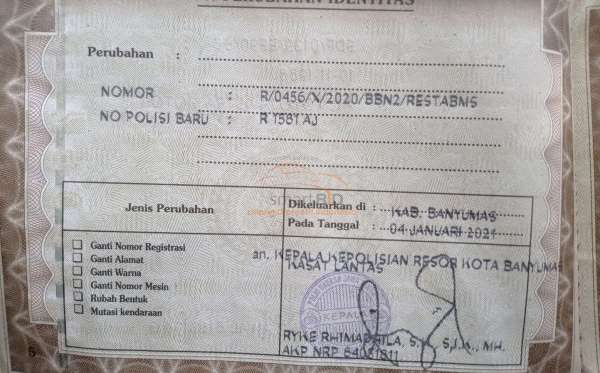 PERUBAHAN IDENTITAS
Perubahan :
NOMOR : R/0456/X/2020/BBN2/RESTABMS
NO POLISI BARU : R 1581 AJ
smart
Jenis Perubahan
Dikeluarkan di : KAB. BANYUMAS
Pada Tanggal : 04 JANUARI 2021
Ganti Nomor Registrasi
Ganti Alamat
Ganti Warna
Ganti Nomor Mesin
Rubah Bentuk
Mutasi kendaraan
an. KEPALA KEPOLISIAN RESOR KOTA BANYUMAS
KASAT LANTAS
KEPALA
RYKE S.I.K., MH.
AKP NRP